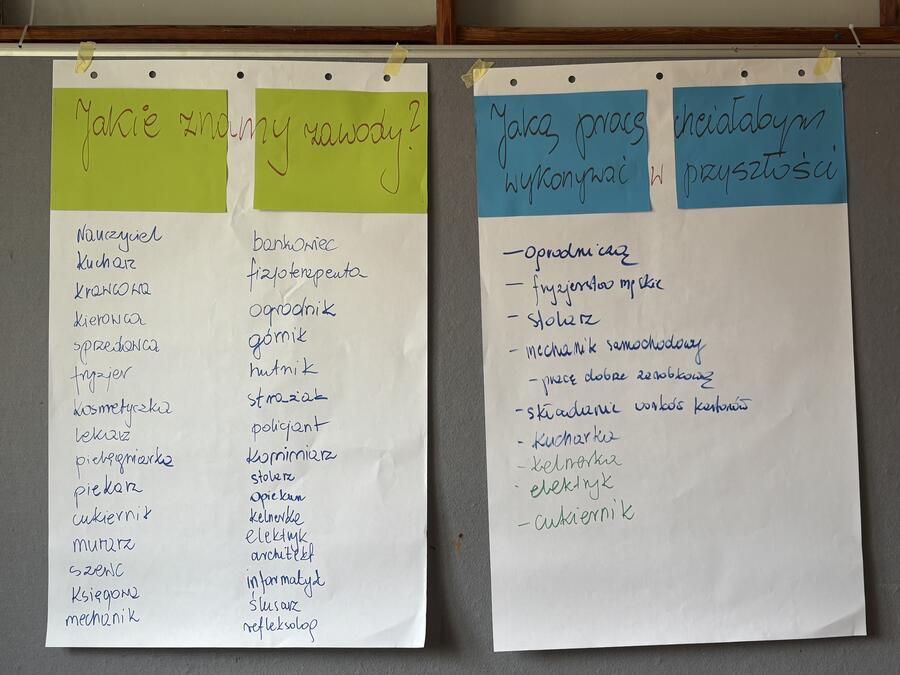 Jakie znamy zawody?
Nauczyciel
kucharz
krawcowa
kierowca
sprzedawca
fryzjer
kosmetyczka
lekarz
pielęgniarka
piekarz
cukiernik
murarz
szewc
księgowa
mechanik
bankowiec
fizjoterapeuta
ogrodnik
górnik
hutnik
strażak
policjant
kominiarz
stolarz
opiekun
kelnerka
elektryk
architekt
informatyk
ślusarz
refleksolog
Jaką pracę chciałabym
wykonywać w przyszłości
- ogrodniczą
- fryzjerstwo męskie
- stolarz
- mechanik samochodowy
- pracę dobrze zarobkową
- składanie kartonów
- kucharka
- kelnerka
- elektryk
- cukiernik